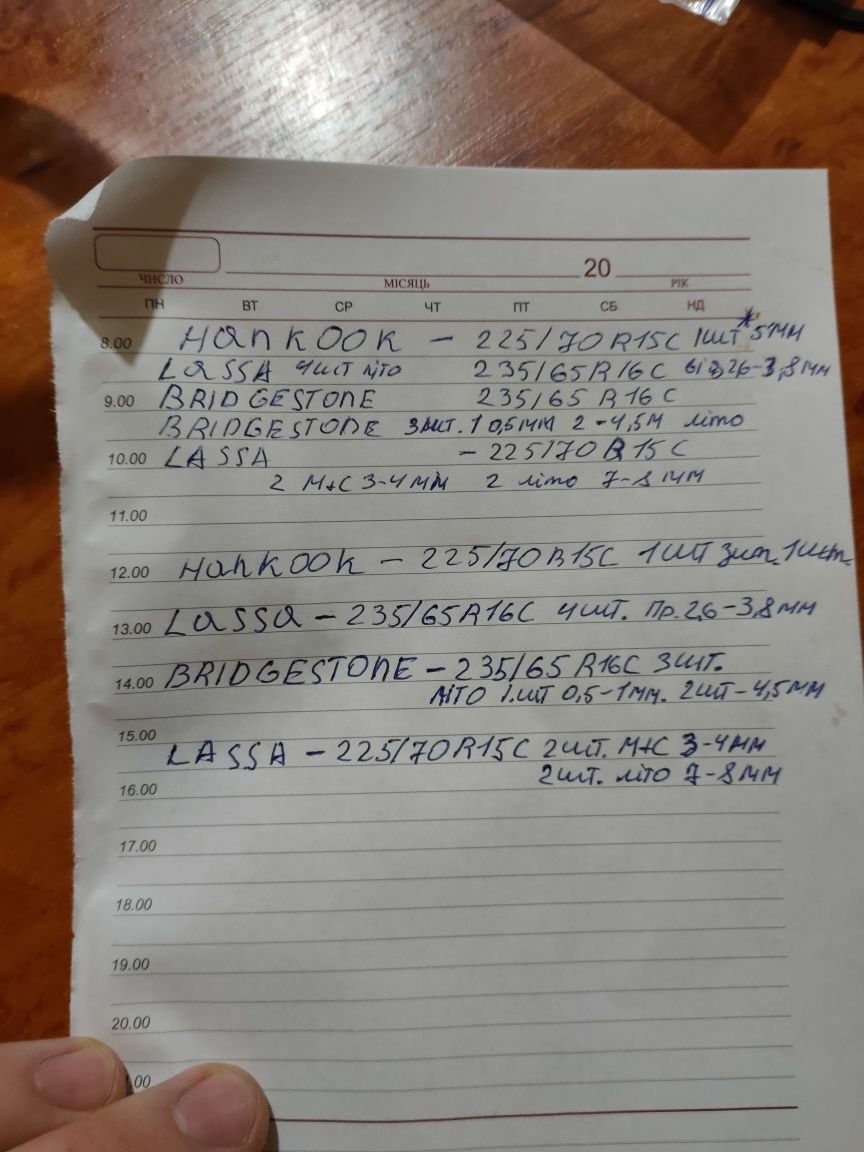 20
ЧИСЛО МІСЯЦЬ РІК
ПН ВТ СР ЧТ ПТ СБ НД
8.00 Hankook - 225/70 R15C 1шт * 5мм
LASSA 4шт літо 235/65 R16C від 2,6-3,8мм
9.00 BRIDGESTONE 235/65 R16C
BRIDGESTONE 3шт. 1 0,5мм 2-4,5м літо
10.00 LASSA - 225/70 R15C
2 м+с 3-4мм 2 літо 7-8мм
11.00
12.00 Hankook - 225/70 R15C 1шт зим. 1шт.
13.00 LASSA - 235/65 R16C 4шт. пр. 2,6-3,8мм
14.00 BRIDGESTONE - 235/65 R16C 3шт.
літо 1.шт 0,5-1мм. 2шт-4,5мм
15.00
LASSA - 225/70 R15C 2шт. м+с 3-4мм
16.00 2шт. літо 7-8мм
17.00
18.00
19.00
20.00
.00